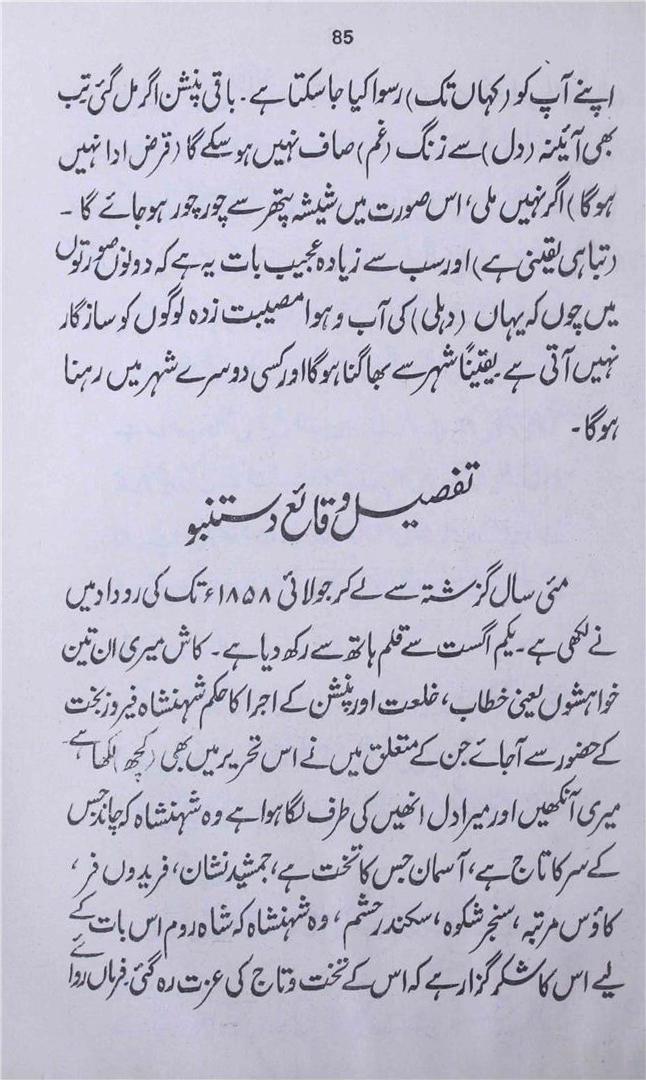 85
اپنے آپ کو (کہاں تک) رسوا کیا جا سکتا ہے۔ باقی پنشن اگر مل گئی تب
بھی آئینہ (دل) سے زنگ (غم) صاف نہیں ہو سکے گا (قرض ادا نہیں
ہوگا) اگر نہیں ملی، اس صورت میں شیشہ پتھر سے چور چور ہو جائے گا ۔
(تباہی یقینی ہے) اور سب سے زیادہ عجیب بات یہ ہے کہ دونوں صورتوں
میں چوں کہ یہاں (دہلی) کی آب و ہوا مصیبت زدہ لوگوں کو سازگار
نہیں آتی ہے یقیناً شہر سے بھاگنا ہوگا اور کسی دوسرے شہر میں رہنا
ہوگا۔
تفصیل وقائع دستنبو
مئی سال گزشتہ سے لے کر جولائی ۱۸۵۸ء تک کی روداد میں
نے لکھی ہے۔ یکم اگست سے قلم ہاتھ سے رکھ دیا ہے۔ کاش میری ان تین
خواہشوں یعنی خطاب، خلعت اور پنشن کے اجرا کا حکم شہنشاہ فیروز بخت
کے حضور سے آجائے جن کے متعلق میں نے اس تحریر میں بھی (کچھ) لکھا ہے
میری آنکھیں اور میرا دل انھیں کی طرف لگا ہوا ہے وہ شہنشاہ کہ چاند جس
کے سر کا تاج ہے، آسمان جس کا تخت ہے، جمشید نشان، فریدوں فر،
کاؤس مرتبہ، سنجر شکوہ، سکندر حشم، وہ شہنشاہ کہ شاہ روم اس بات کے
لیے اس کا شکر گزار ہے کہ اس کے تخت و تاج کی عزت رہ گئی۔ فرماں روائے